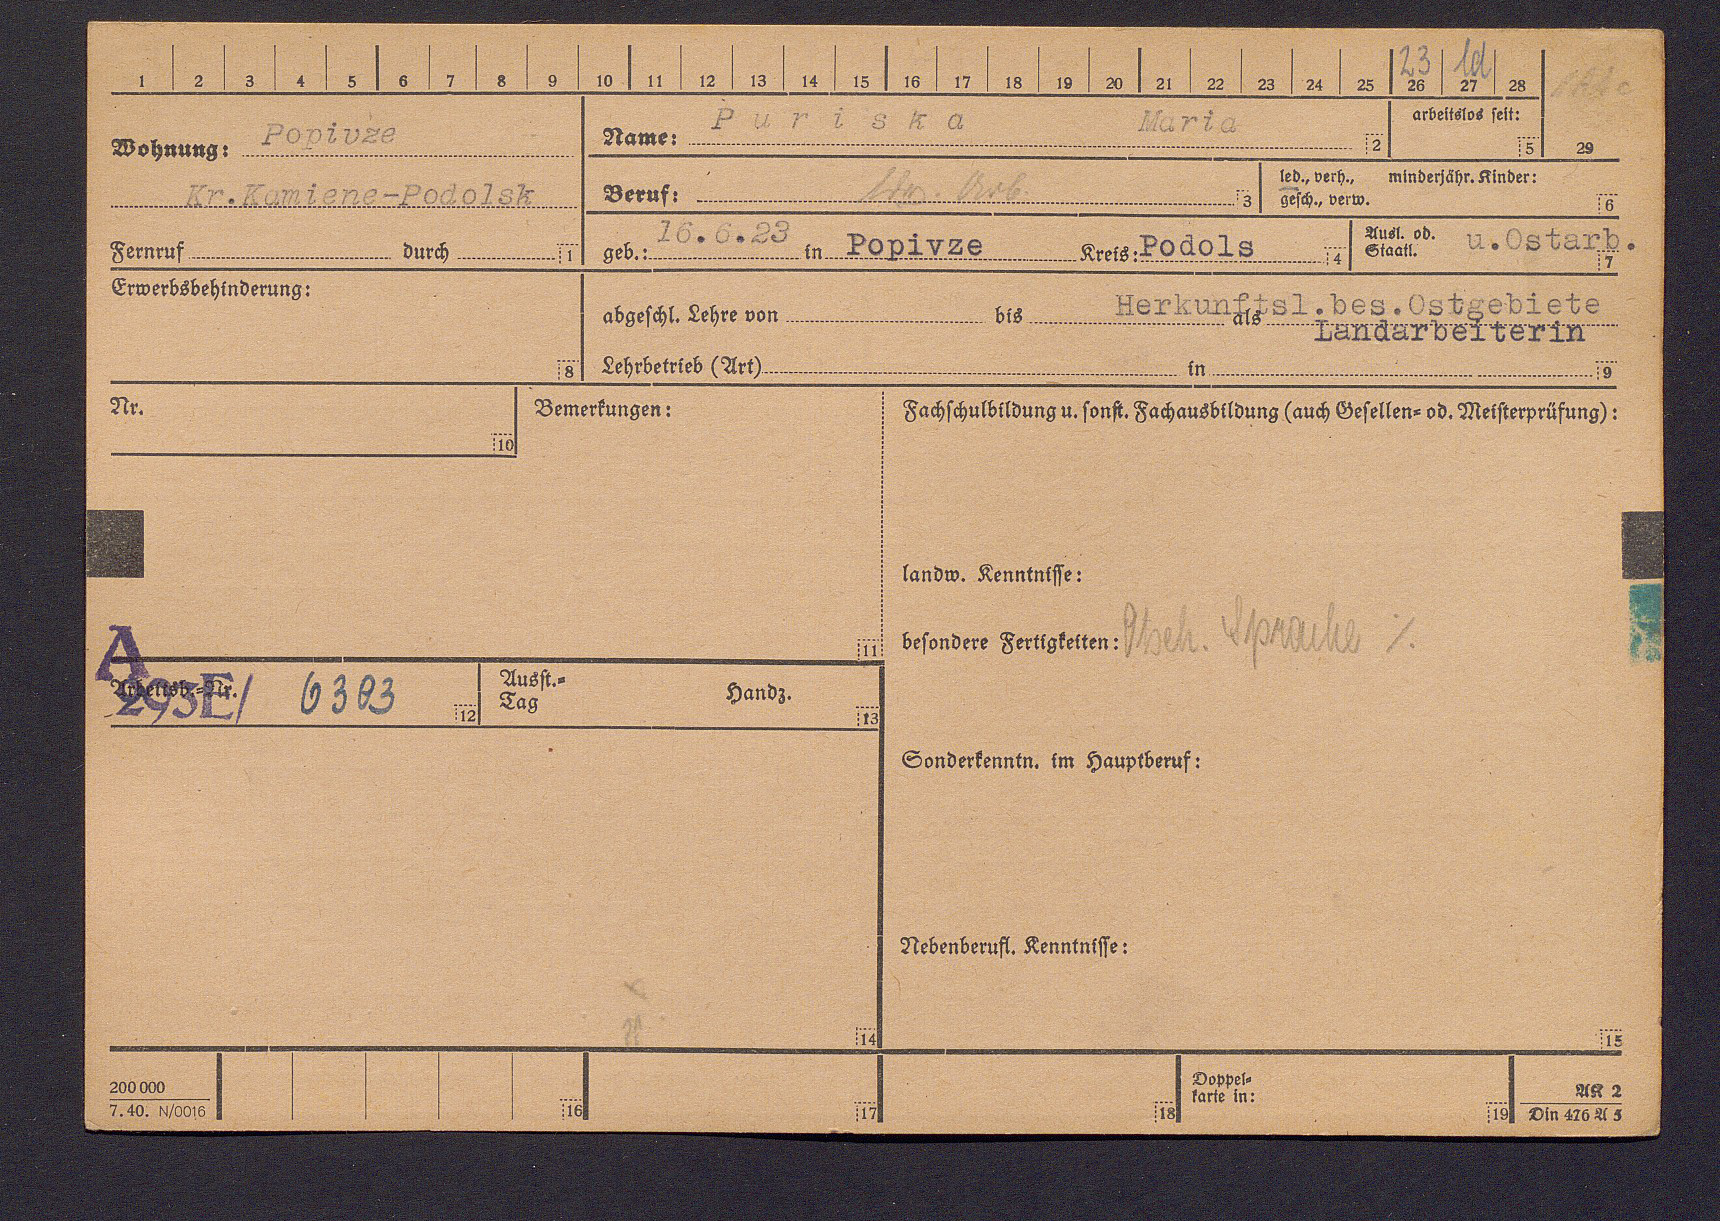 1 2 3 4 5 6 7 8 9 10 11 12 13 14 15 16 17 18 19 20 21 22 23 24 25 26 27 28
23 ld
Wohnung: Popivze
Kr.Kamiene-Podolsk
Fernruf durch 1
Name: Puriska Maria 2
arbeitslos seit: 5
29
Beruf: ldw. Arb. 3
led., verh., minderjähr. Kinder:
gesch., verw. 6
geb.: 16.6.23 in Popivze Kreis: Podols 4
Ausl. od. Staatl. u.Ostarb. 7
Erwerbsbehinderung: 8
Herkunftsl.bes.Ostgebiete
abgeschl. Lehre von bis als Landarbeiterin
Lehrbetrieb (Art) in 9
Nr. 10
Bemerkungen: 11
Fachschulbildung u. sonst. Fachausbildung (auch Gesellen= od. Meisterprüfung):
landw. Kenntnisse:
besondere Fertigkeiten: Dtsch. Sprache %.
A
Arbeitsb.=Nr. 293E/ 6303 12
Ausst.=
Tag Handz. 13
Sonderkenntn. im Hauptberuf:
Nebenberufl. Kenntnisse:
14
15
200 000
7. 40. N/0016
16 17 18
Doppel=
karte in: 19
AK 2
Din 476 A 5